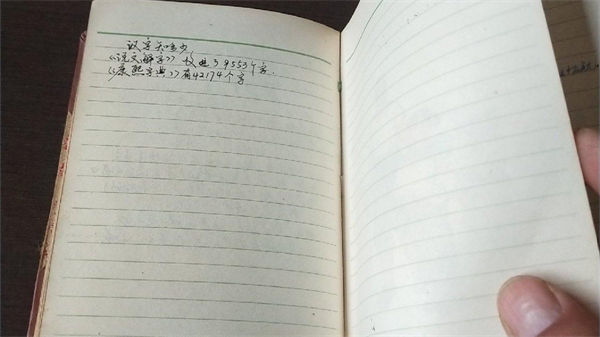 汉字知多少
《说文解字》收进了9553个字.
《康熙字典》有42174个字